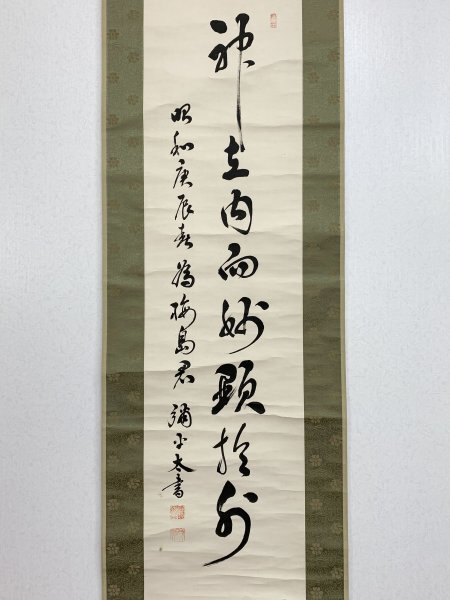 神在内而妙顕於外
昭和庚辰春為梅島君 彌平太書